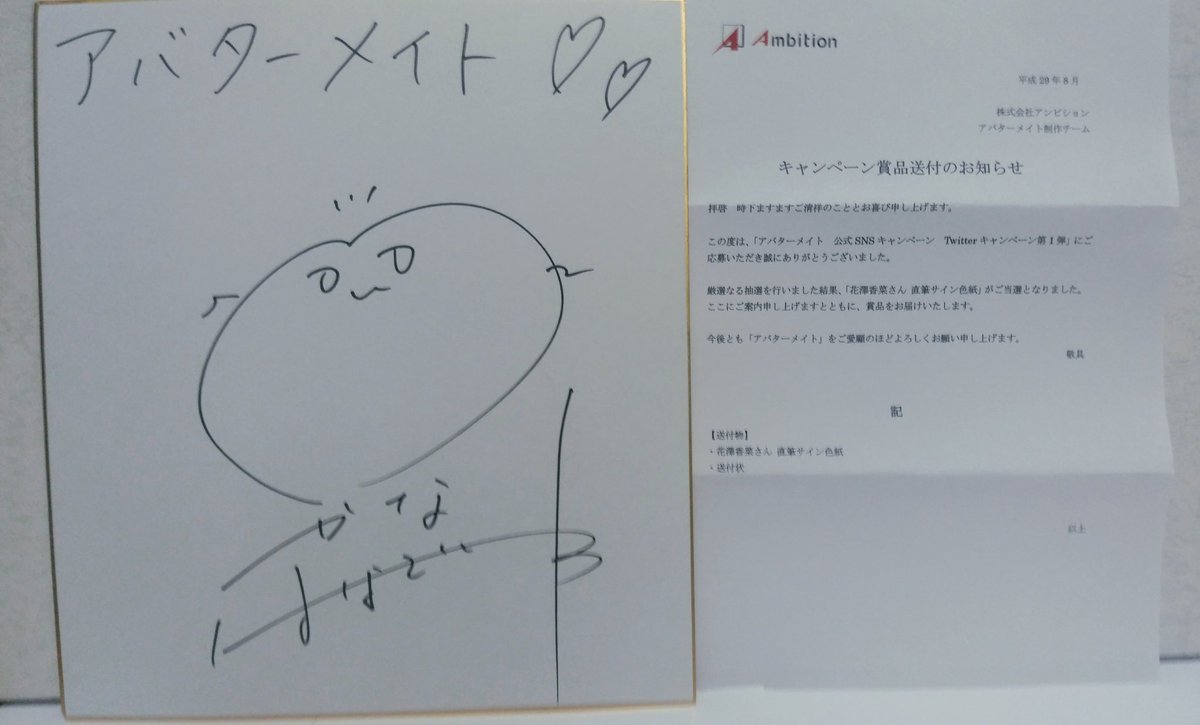 アバターメイト♡♡
かな
はなざわ
Ambition
平成29年8月
株式会社アンビション
アバターメイト制作チーム
キャンペーン賞品送付のお知らせ
拝啓　時下ますますご清祥のこととお喜び申し上げます。
この度は、「アバターメイト　公式SNSキャンペーン　Twitterキャンペーン第1弾」にご
応募いただき誠にありがとうございました。
厳選なる抽選を行いました結果、「花澤香菜さん 直筆サイン色紙」がご当選となりました。
ここにご案内申し上げますとともに、賞品をお届けいたします。
今後とも「アバターメイト」をご愛顧のほどよろしくお願い申し上げます。
敬具
記
【送付物】
・花澤香菜さん 直筆サイン色紙
・送付状
以上